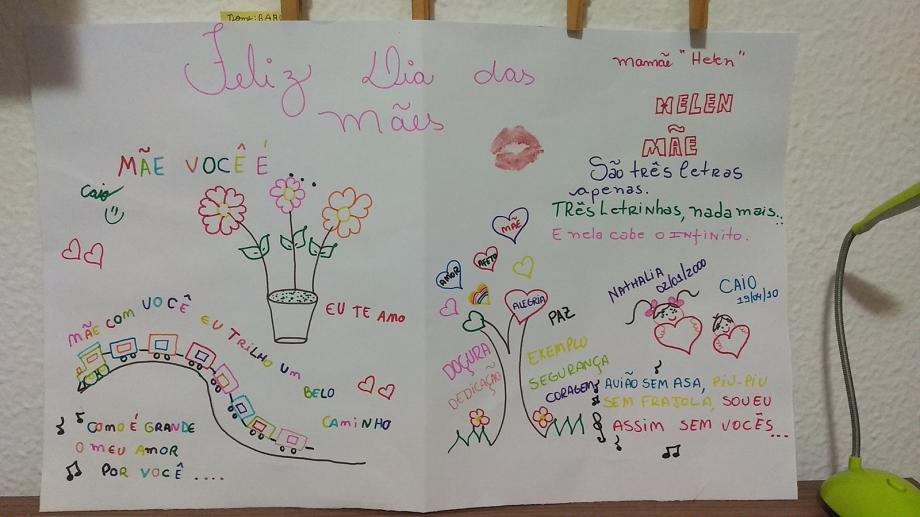 Nome:
Feliz Dia das
mães
mamãe "Helen"
HELEN
MÃE
São três letras
apenas.
TRÊS Letrinhas, nada mais..
E nela cabe o INfinito.
MÃE VOCÊ É ...
Caio
EU TE AMO
MÃE COM VOCÊ EU TRILHO UM
BELO
CAMINHO
COMO É GRANDE
O MEU AMOR
POR VOCÊ ....
MÃE
AMOR
AFETO
ALEGRIA
PAZ
DOÇURA
DEDICAÇÃO
EXEMPLO
SEGURANÇA
CORAGEM
NATHALIA
02/01/2000
CAIO
19/04/10
AVIÃO SEM ASA, PIU-PIU
SEM FRAJOLA, SOU EU
ASSIM SEM VOCÊS...